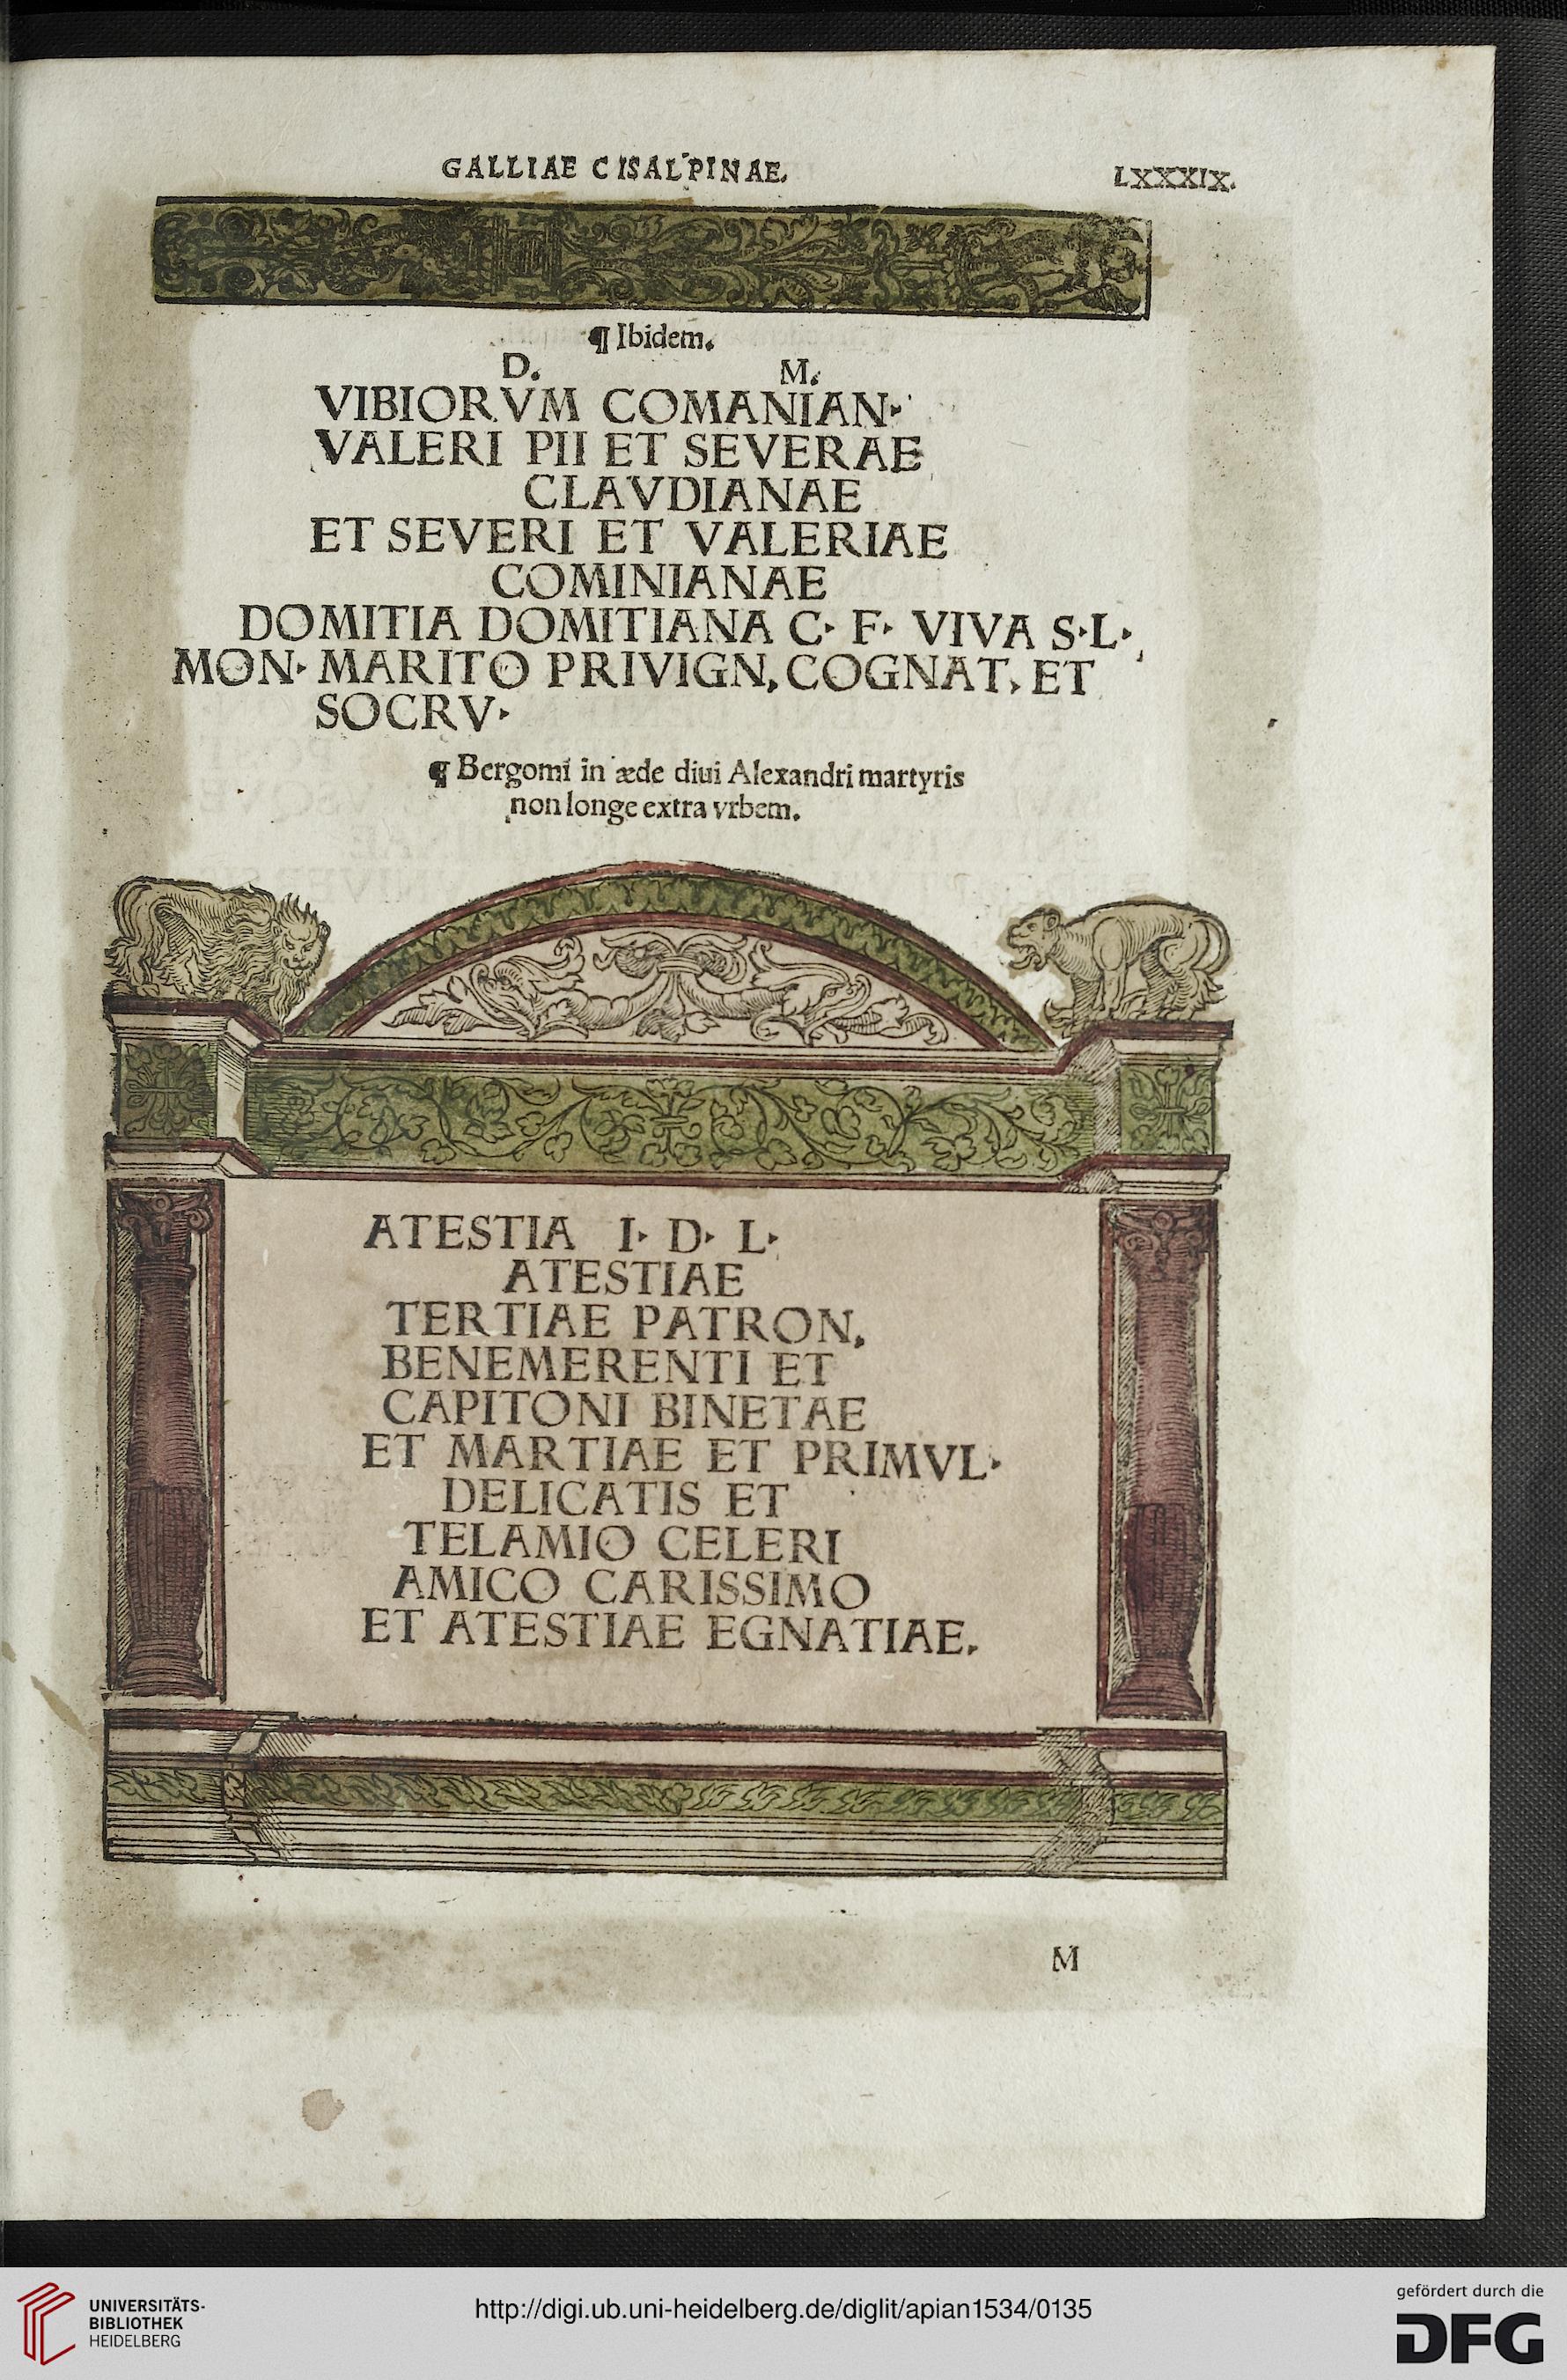 GALLIAE CISALPINAE. LXXXIX.
¶ Ibidem.
D. M.
VIBIORVM COMANIAN·
VALERI PII ET SEVERAE
CLAVDIANAE
ET SEVERI ET VALERIAE
COMINIANAE
DOMITIA DOMITIANA C· F· VIVA S·L·
MON· MARITO PRIVIGN, COGNAT, ET
SOCRV·
¶ Bergomi in æde diui Alexandri martyris
non longe extra vrbem.
ATESTIA I· D· L·
ATESTIAE
TERTIAE PATRON,
BENEMERENTI ET
CAPITONI BINETAE
ET MARTIAE ET PRIMVL·
DELICATIS ET
TELAMIO CELERI
AMICO CARISSIMO
ET ATESTIAE EGNATIAE.
M
UNIVERSITÄTS-
BIBLIOTHEK
HEIDELBERG
http://digi.ub.uni-heidelberg.de/diglit/apian1534/0135
gefördert durch die
DFG